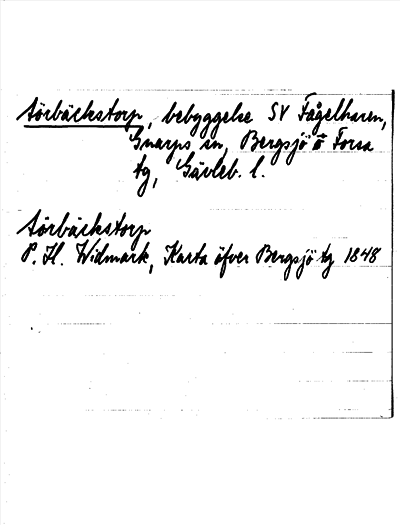 Sörbäckstorp, bebyggelse SV Fågelharen,
Gnarps sn, Bergsjö o Forsa
tg, Gävleb. l.
Sörbäckstorp
P. H. Widmark, Karta öfver Bergsjö tg 1848